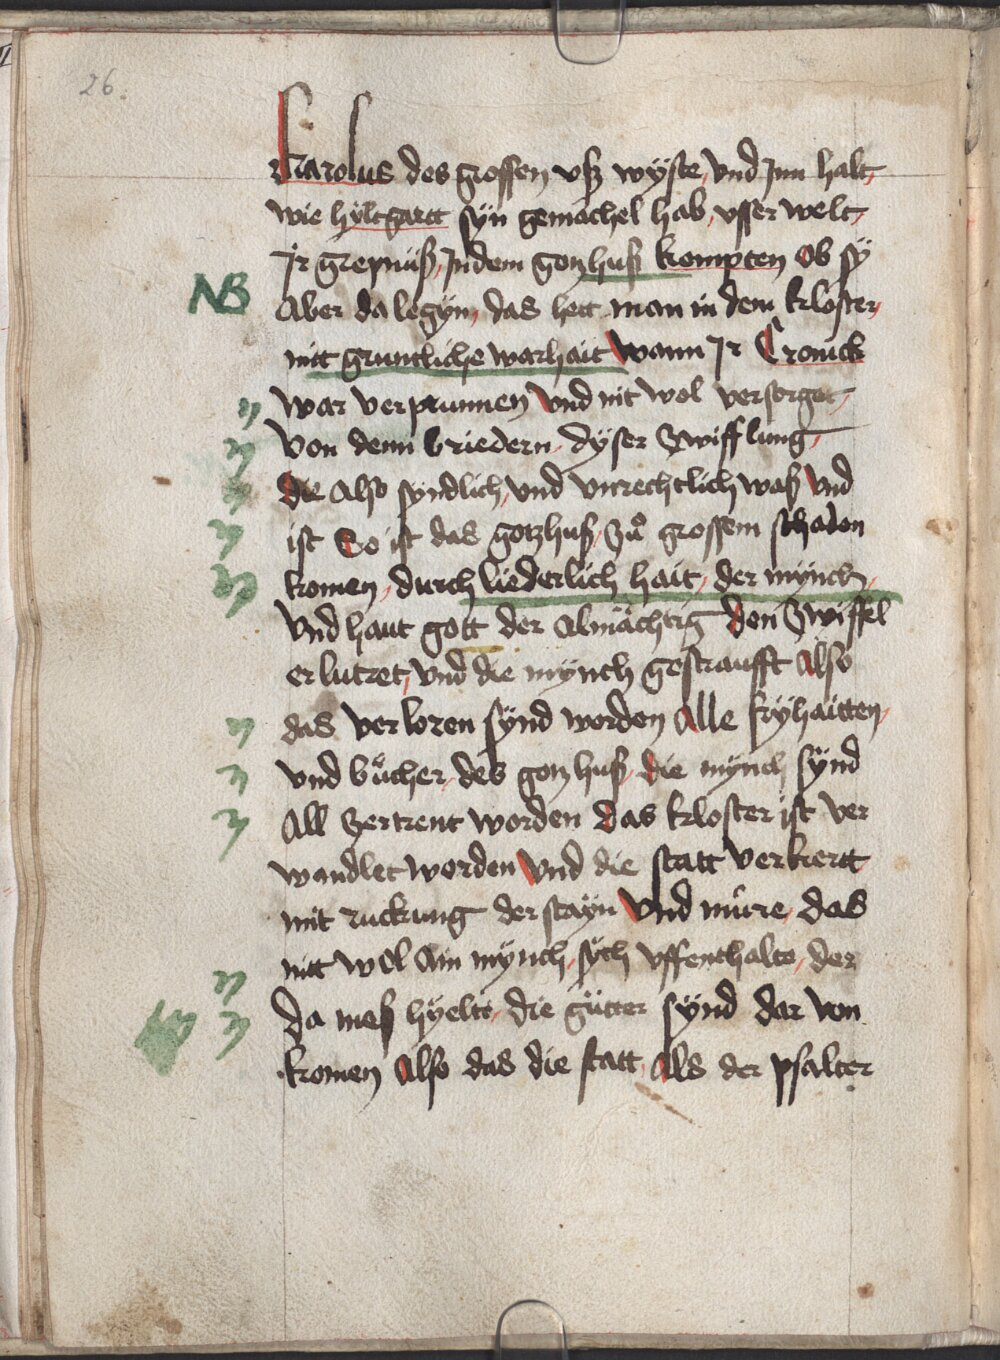 26
Karolus des grossen vsz wyste, vnd Jnn halt,
wie hyltgartt syn gemachel hab, vsser welt,
Jr grepnüß, Jn dem gotzhuß kempten Ob sy
NB Aber da legyn, das hett man in dem kloster,
nitt gruntliche warhait wann Jr Cronick
war verprunnen vnd nit wol versorget,
Von denn briedern, dyser Zwifflung,
die Also syndlich, vnd vnrechtlich waß vnd
ist So ist das gotzhuß, Zů grossem schaden
komen, durch liederlich hait, der mynch,
Vnd haut gott der Almächtig den Zwiffel
erlutret, vnd die mynch gestraufft Also
das verloren synd worden Alle fryhaitten,
vnd bůcher, des gotzhuß, die mynch synd
All Zertrent worden das kloster ist ver
wandlet worden Vnd die statt verkertt
mit ruckung der stayn Vnd mure, das
nitt wol Ain mynch, sych vffenthalte, der
Da meß hyeltt, die gütter synd dar von
komen Also das die statt, Als der psalter